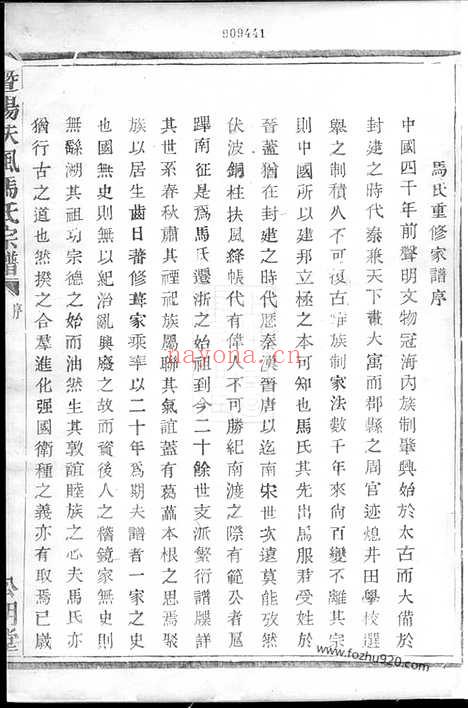 909441
馬氏重修家譜序
中國四千年前聲明文物冠海内族制肇興始於太古而大備於
封建之時代泰秦天下畫大寓而郡縣之周官迹熄井田學校選
舉之制積久不可復古唯族制家法數千年來尙百變不離其宗
則中國所以建邦立極之本可知也馬氏其先出馬服君受姓於
晉蓋猶在封建之時代歷秦漢晉唐以迄南宋世次遠莫能攷然
伏波銅柱扶風絳帳代有偉人不可勝紀南渡之際有範公者扈
蹕南征是爲馬氏遷浙之始祖到今二十餘世支派繁衍譜牒詳
其世系春秋肅其禋祀族屬聯其氣誼蓋有葛藟本根之思焉聚
族以居生齒日蕃修葺家乘率以二十年爲期夫譜者一家之史
也國無史則無以紀治亂興廢之故而資後人之稽鏡家無史則
無繇溯其祖功宗德之始而油然生其敦誼睦族之心夫馬氏亦
猶行古之道也然揆之合羣進化强國衛種之義亦有取焉已歲
暨陽扶風馬氏宗譜
序
公明堂
hayona.com
www.fozhu920.com